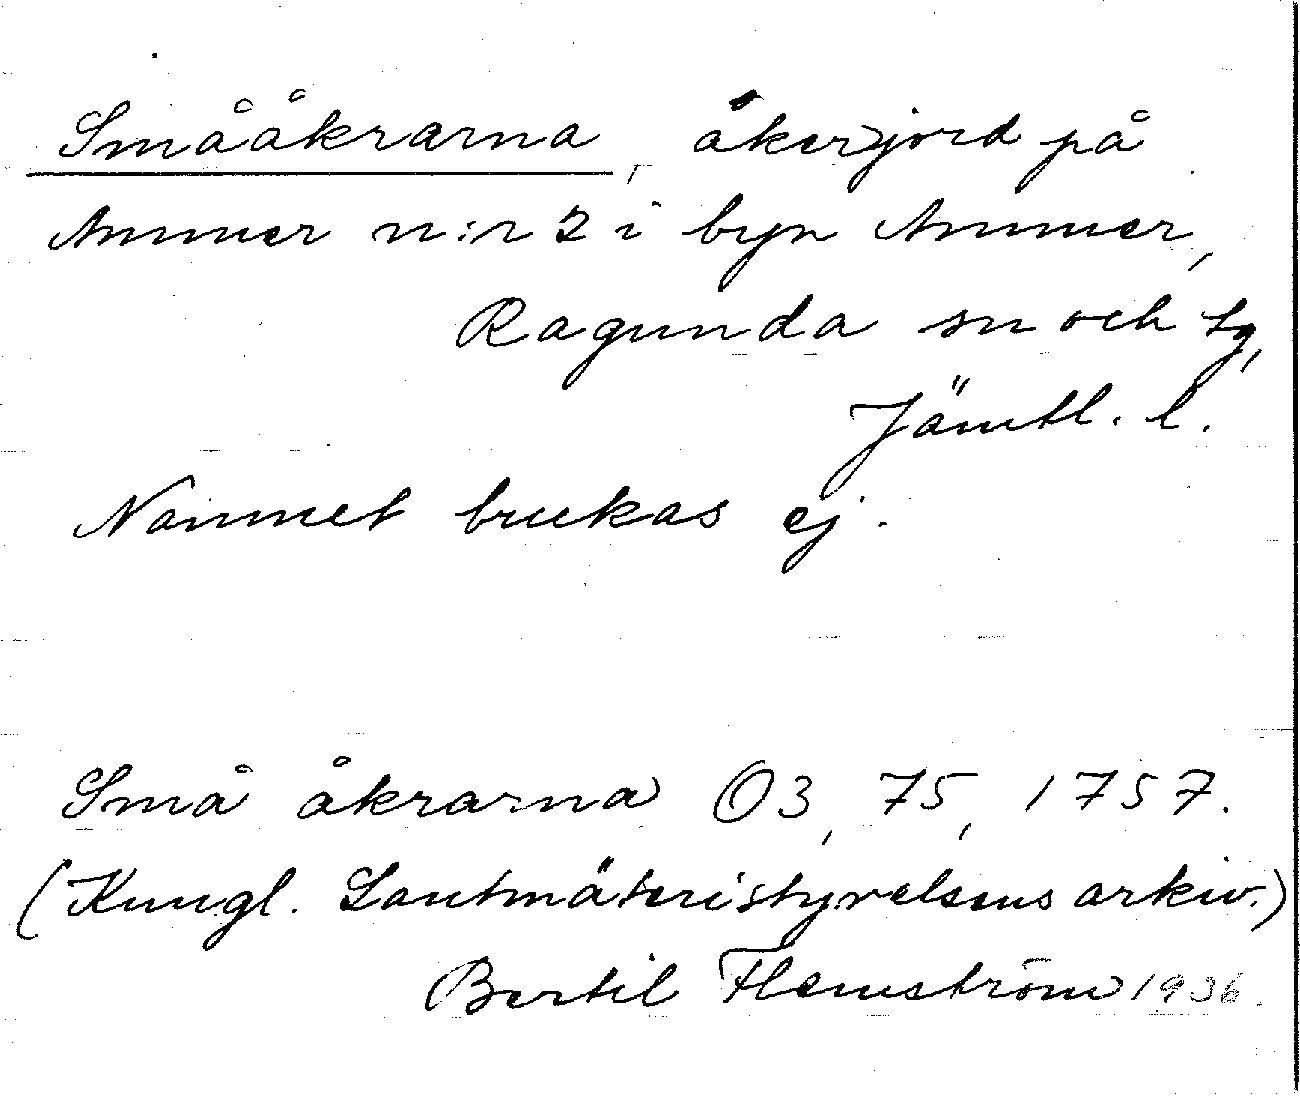 Småå̊krarna, åkerjord på
Ammer n:r 2 i byn Ammer,
Ragunda sn och tg,
Jämtl. l.
Namnet brukas ej.
Små åkrarna O3, 75, 1757.
(Kungl. Lantmäteristyrelsens arkiv.)
Bertil Flemström 1936.